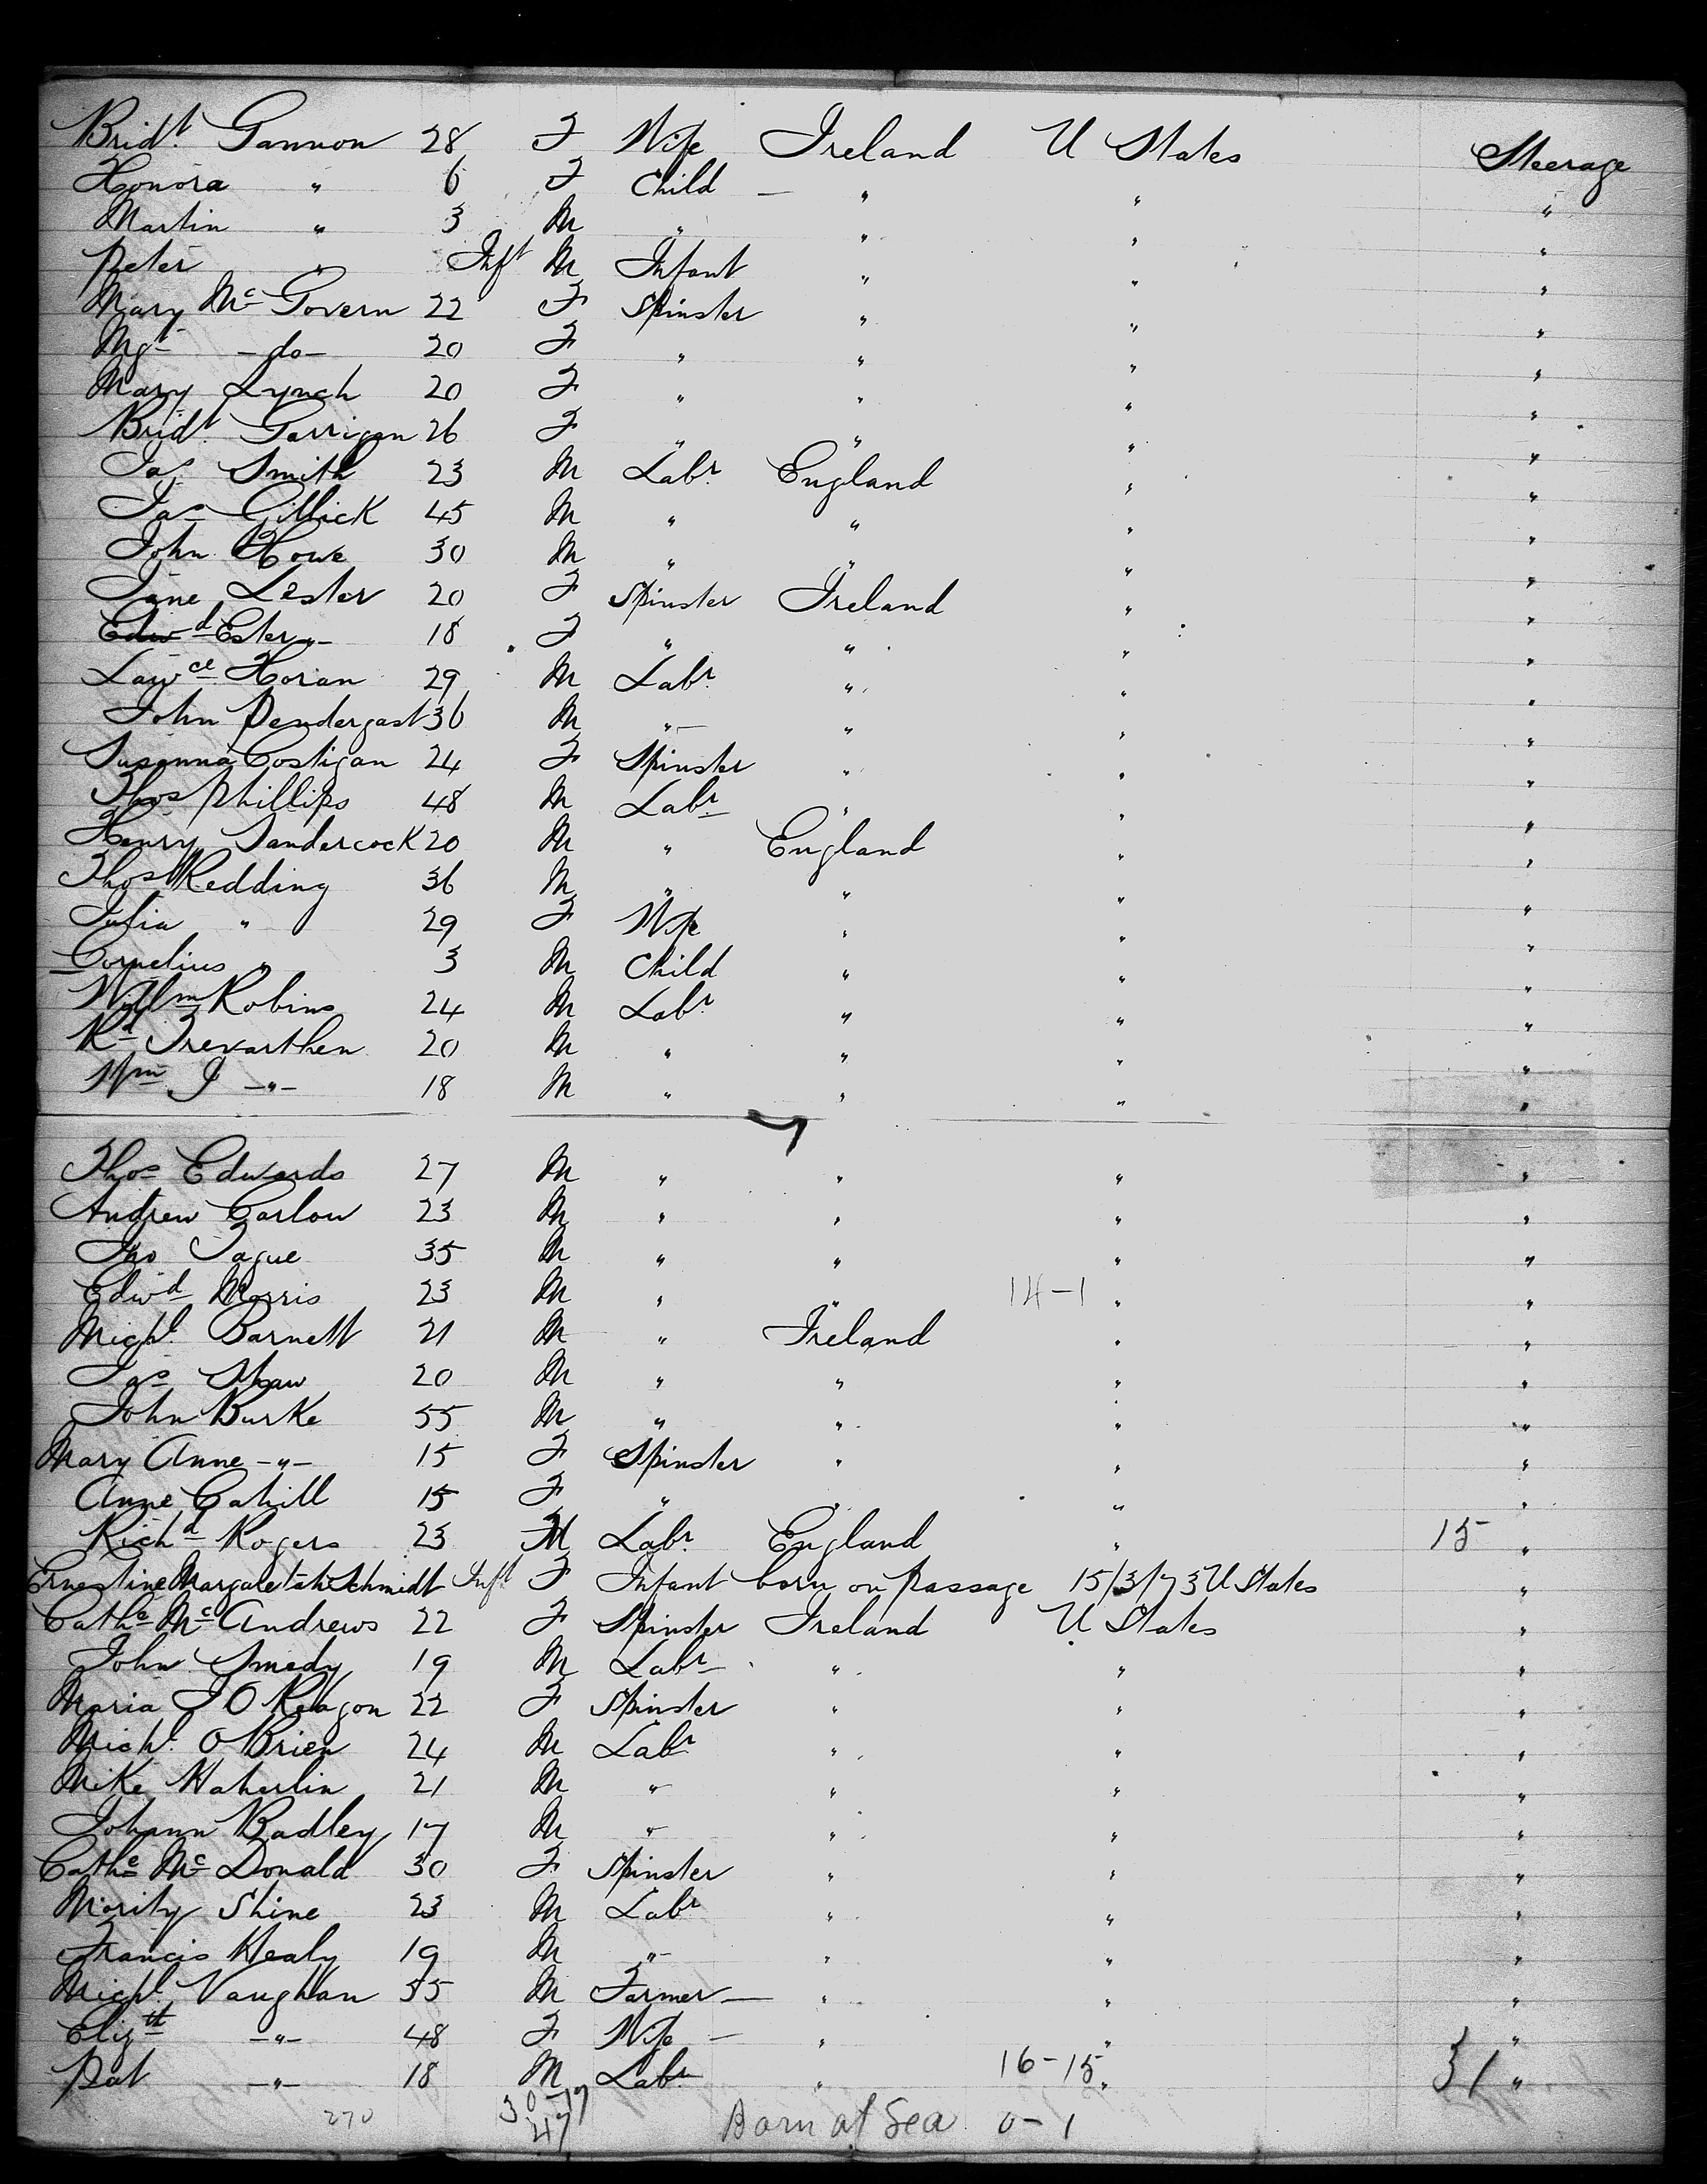 Bridt. Gannon 28 F Wife Ireland U States Steerage
Honora " 6 F Child — " " "
Martin " 3 M " " " "
Peter " Inft M Infant " " "
Mary Mc Govern 22 F Spinster " " "
Mgt -do- 20 F " " " "
Mary Lynch 20 F " " " "
Bridt. Garrigan 26 F " " " "
Jas Smith 23 M Labr. England " "
Jas Gillick 45 M " " " "
John Howe 30 M " " " "
Jane Lester 20 F Spinster Ireland " "
Edwd Ester -"- 18 F " " " "
Lawce Horan 29 M Labr. " " "
John Pendergast 36 M " " " "
Susanna Costigan 24 F Spinster " " "
Thos Phillips 48 M Labr " " "
Henry Sandercock 20 M " England " "
Thos Redding 36 M " " " "
Julia " 29 F Wife " " "
Cornelius " 3 M Child " " "
Willm Robins 24 M Labr. " " "
Rd Trevarthen 20 M " " " "
Wm J -"- 18 M " " " "
7
Thos Edwards 27 M " " " "
Andrew Carlow 23 M " " " "
Jno Tague 35 M " " " "
Edwd Morris 23 M " " 14-1 " "
Michl. Barnett 21 M " Ireland " "
Jas Shaw 20 M " " " "
John Burke 55 M " " " "
Mary Anne -"- 15 F Spinster " " "
Anne Cahill 15 F " " " "
Richd Rogers 23 M Labr. England " 15 "
Ernestine Schmidt Inft F Infant born on passage 15/3/73 U States "
Cathe Mc Andrews 22 F Spinster Ireland U States "
John Smedy 19 M Labr " " "
Maria J O Reagon 22 F Spinster " " "
Michl. O Brien 24 M Labr " " "
Mike 21 M " " " "
Johann Badley 17 M " " " "
Cathe Mc Donald 30 F Spinster " " "
Mority Shine 23 M Labr " " "
Francis Healy 19 M " " " "
Michl. Vaughan 55 M Farmer — " " "
Elizth -"- 48 F Wife — " " "
Pat -"- 18 M Labr " 16-15 " 31 "
270 30-17 Born at Sea 0-1
47